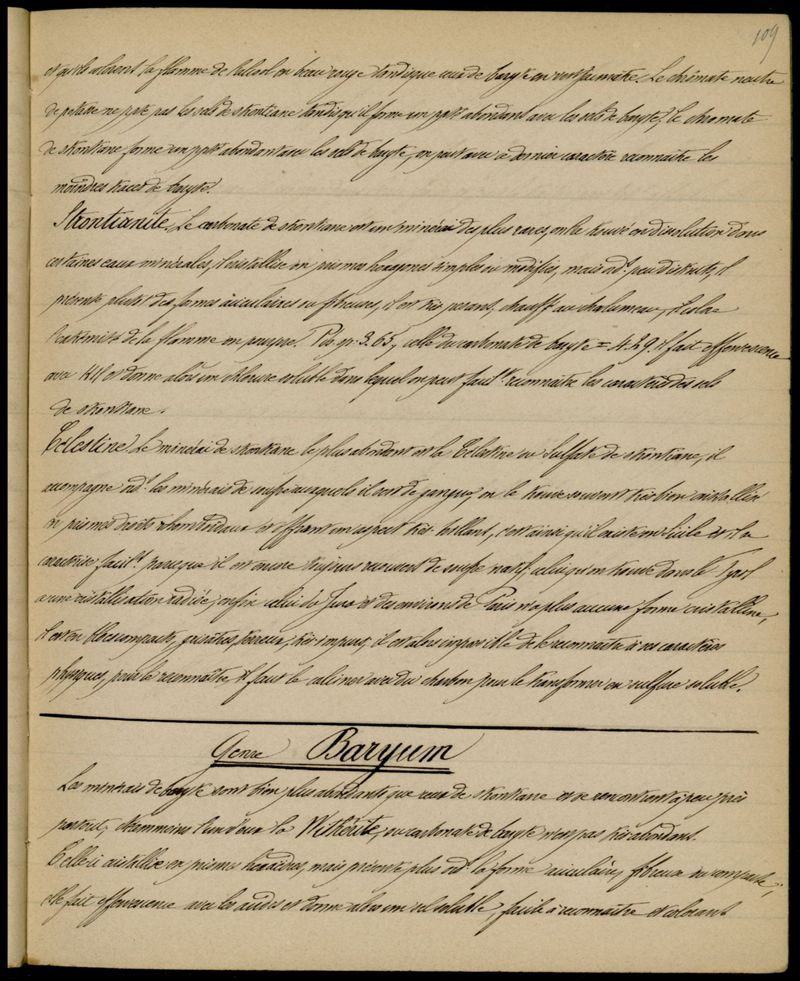 109
et qu'ils colorent la flamme de l'alcool en beau rouge tandis que ceux de baryte en vert jaunâtre. Le chromate neutre
de potasse ne ppte pas les sels de strontiane tandis qu'il forme un ppté abondant avec les sels de baryte, le chromate
de strontiane forme un ppté abondant avec les sels de baryte, on peut avec ce dernier caractère reconnaître les
moindres traces de baryte.
Strontianite. Le carbonate de strontiane est un minérai des plus rares, on l'a trouvé en dissolution dans
certaines eaux minérales, il cristallise en prismes hexagones simples ou modifiés, mais ordt peu distincts, il
présente plutôt des formes aciculaires ou fibreuses, il est très pesant, chauffé au chalumeau, il colore
l'extrémité de la flamme en pourpre. P.s. gr. 3.65, celle du carbonate de baryte = 4.29, il fait effervescence
avec HCl et donne alors un chlorure soluble dans lequel on peut facilt reconnaître les caractères des sels
de strontiane.
Célestine Le minérai de strontiane le plus abondant est la Célestine ou Sulfate de strontiane, il
accompagne ordt les minérais de soufre auxquels il sert de gangue, on le trouve souvent très bien cristallisé
en prismes droits rhomboidaux et offrant un aspect très brillant, c'est ainsi qu'il existe en Sicile et on le
caractérise facilt parceque il est encore toujours recouvert de soufre natif, celui qu'on trouve dans le Tyrol
a une cristallisation radiée, enfin celui du Jura et des environs de Paris n'a plus aucune forme cristalline,
il est en blocs compacts, grisâtres, terreux, très impurs, il est alors impossible de le reconnaitre à ses caractères
physiques, pour le reconnaître, il faut le calciner avec du charbon pour le transformer en sulfure soluble.
Genre Baryum
Les minérais de baryte sont bien plus abondants que ceux de strontiane et se rencontrent à peu près
partout, néanmoins l'un d'eux la Withérite, ou carbonate de baryte n'est pas très abondant.
Celle-ci cristallise en prismes hexaèdres, mais présente plus ordt la forme aciculaire, fibreuse ou compacte,
elle fait effervescence avec les acides et donne alors un sel soluble, facile à reconnaître et colorant